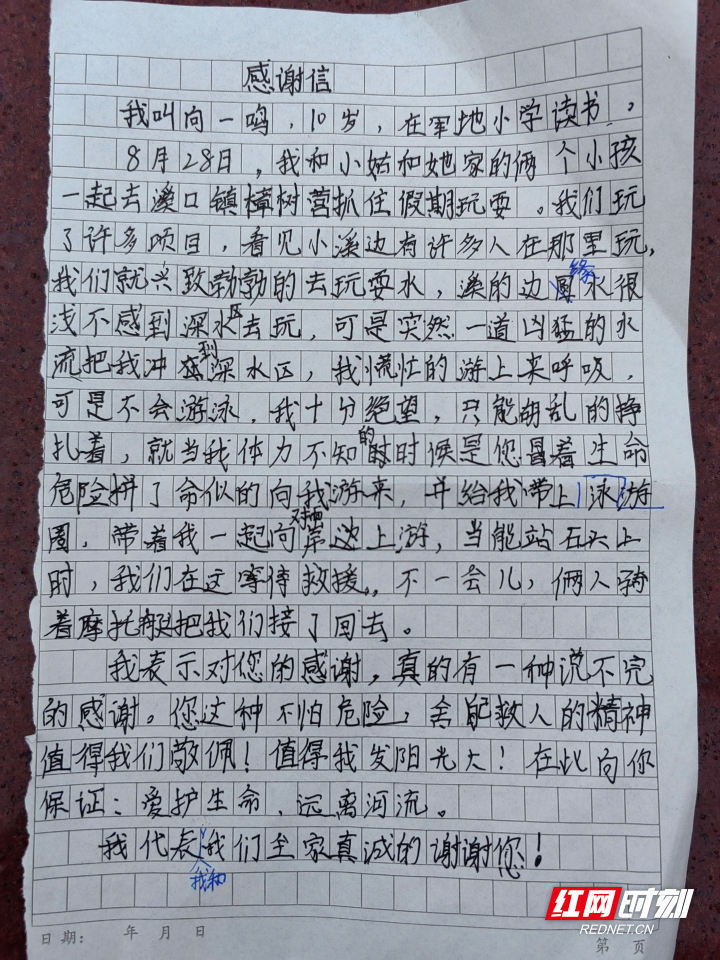 感谢信
我叫向一鸣，10岁，在军地小学读书。
8月28日，我和小姑和她家的俩个小孩
一起去溪口镇樟树营抓住假期玩耍。我们玩
了许多项目，看见小溪边有许多人在那里玩，
我们就兴致勃勃的去玩耍水，溪的边缘水很
浅不感到深水区去玩，可是突然一道凶猛的水
流把我冲到深水区，我慌忙的游上来呼吸，
可是不会游泳，我十分绝望，只能胡乱的挣
扎着，就当我体力不知的时候是您冒着生命
危险拼了命似的向我游来，并给我带上泳游
圈，带着我一起向对面岸边上游，当能站石头上
时，我们在这等待救援，不一会儿，俩人骑
着摩托艇把我们接了回去。
我表示对您的感谢，真的有一种说不完
的感谢。您这种不怕危险，舍能救人的精神
值得我们敬佩！值得我发阳光大！在此向你
保证：爱护生命、远离河流。
我代表我和我们全家真诚的谢谢您！
日期： 年 月 日
第 页
红网时刻
REDNET.CN